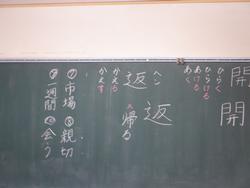 開
開
ひらく
ひらける
あける
あく
返
ヘン
返
×帰る
かえる
かえす
市場 親切
週間 会う